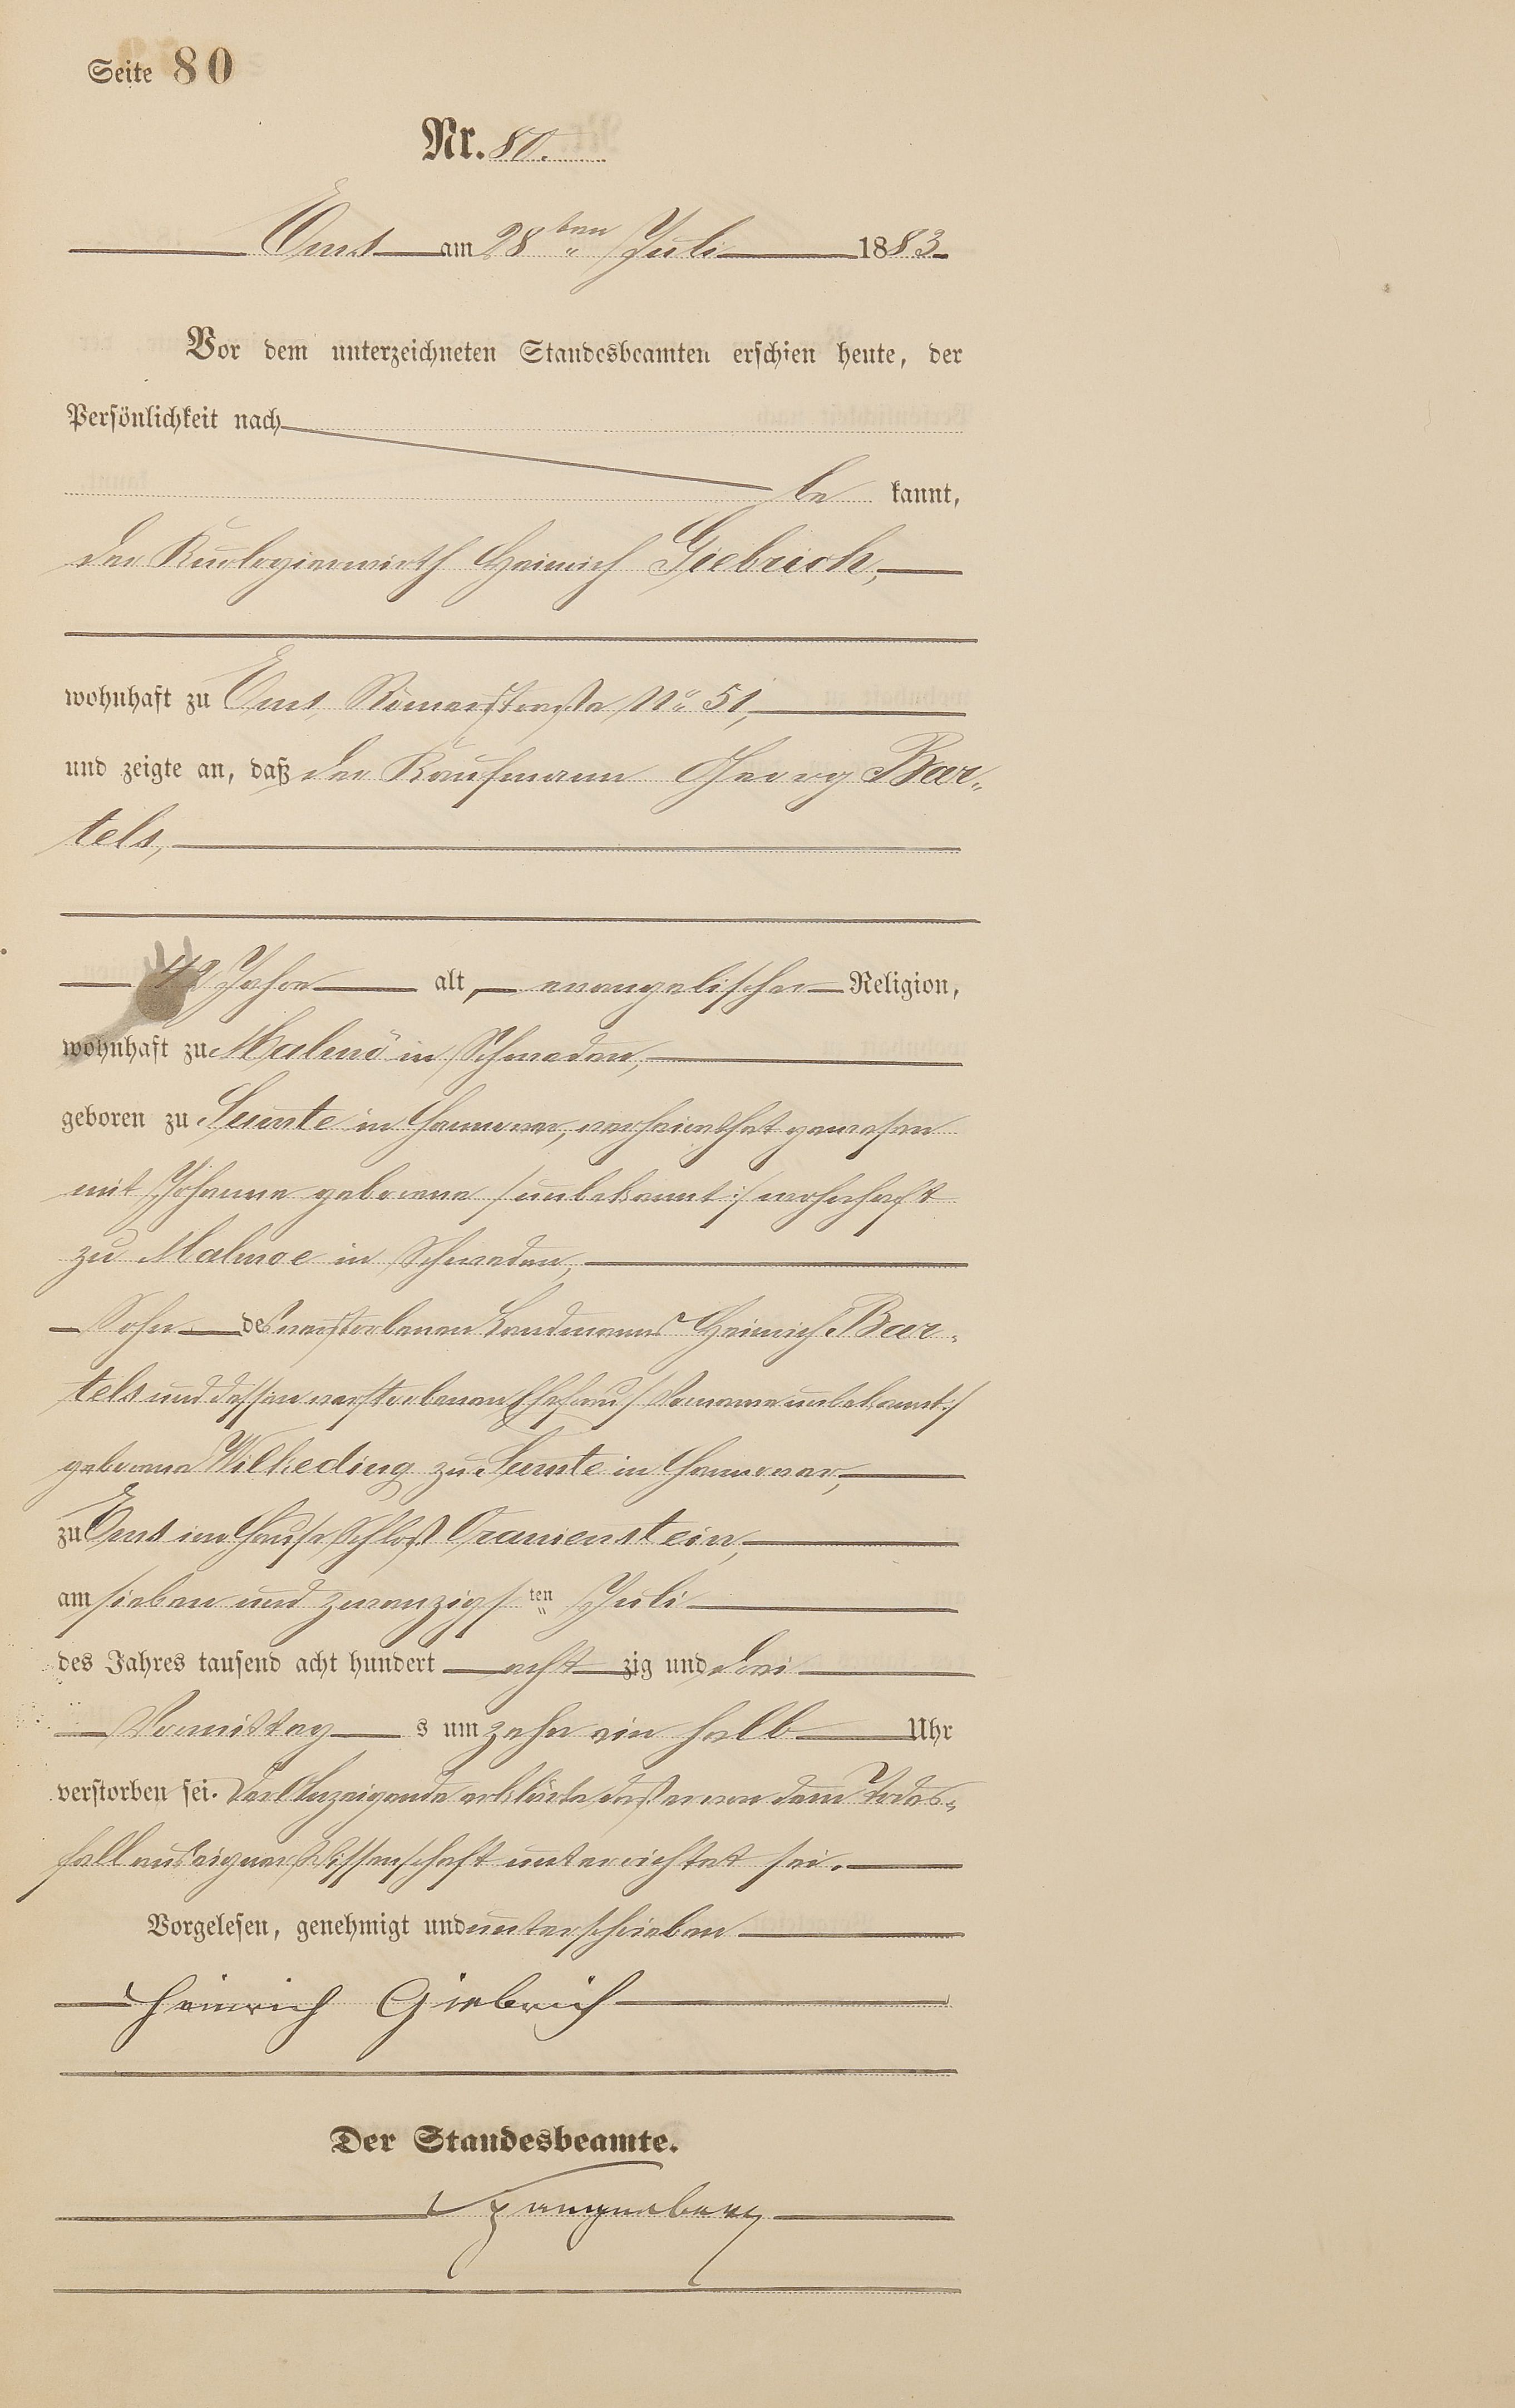 Seite 80
Nr. 80.
Ems am 28ten Juli 1883
Vor dem unterzeichneten Standesbeamten erschien heute, der
Persönlichkeit nach
be kannt,
der Kurlogierwirth Heinrich Giebrich,
wohnhaft zu Ems, Römerstraße No 51,
und zeigte an, daß der Kaufmann Georg Bar-
tels,
42 Jahre alt, evangelischer Religion,
wohnhaft zu Malmö in Schweden,
geboren zu Sumte in Hannover, verheirathet gewesen
mit Johanna geborene /: unbekannt :/ wohnhaft
zu Malmoe in Schweden,
Sohn des verstorbenen Landmanns Heinrich Bar-
tels und dessen verstorbenen Ehefrau /: Vorname unbekannt :/
geborene Wilkeding zu Sumte in Hannover,
zu Ems im Hause Schloß Oranienstein,
am sieben und zwanzigsten Juli
des Jahres tausend acht hundert acht zig und drei
Vormittag s um zehn ein halb Uhr
verstorben sei. Der Anzeigende erklärte daß er von dem Todes-
fall aus eigner Wissenschaft unterrichtet sei.
Vorgelesen, genehmigt und unterschrieben
Heinrich Giebrich
Der Standesbeamte.
Spangenberg